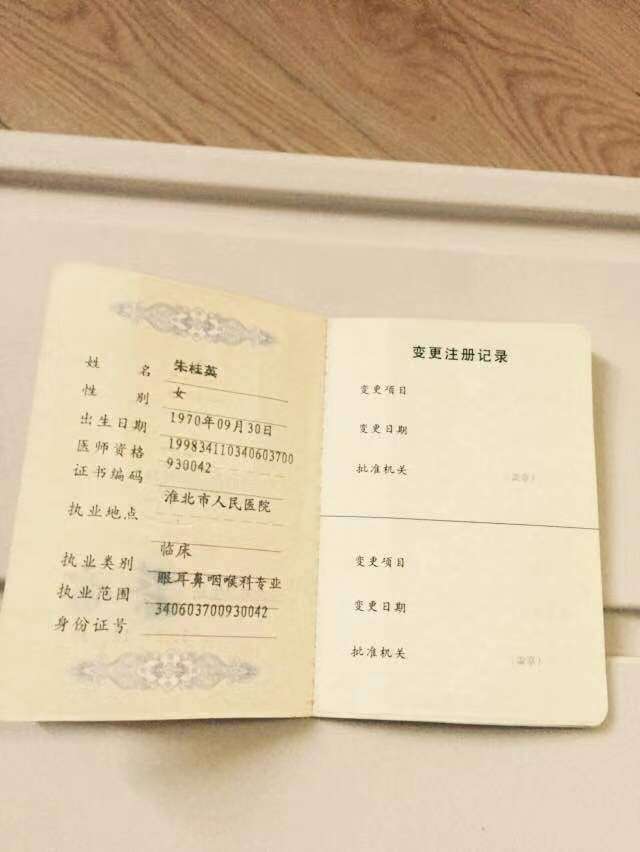 姓名 朱桂英
性别 女
出生日期 1970年09月30日
医师资格 199834110340603700
证书编码 930042
执业地点 淮北市人民医院
执业类别 临床
执业范围 眼耳鼻咽喉科专业
身份证号 340603700930042
变更注册记录
变更项目
变更日期
批准机关
(盖章)
变更项目
变更日期
批准机关
(盖章)